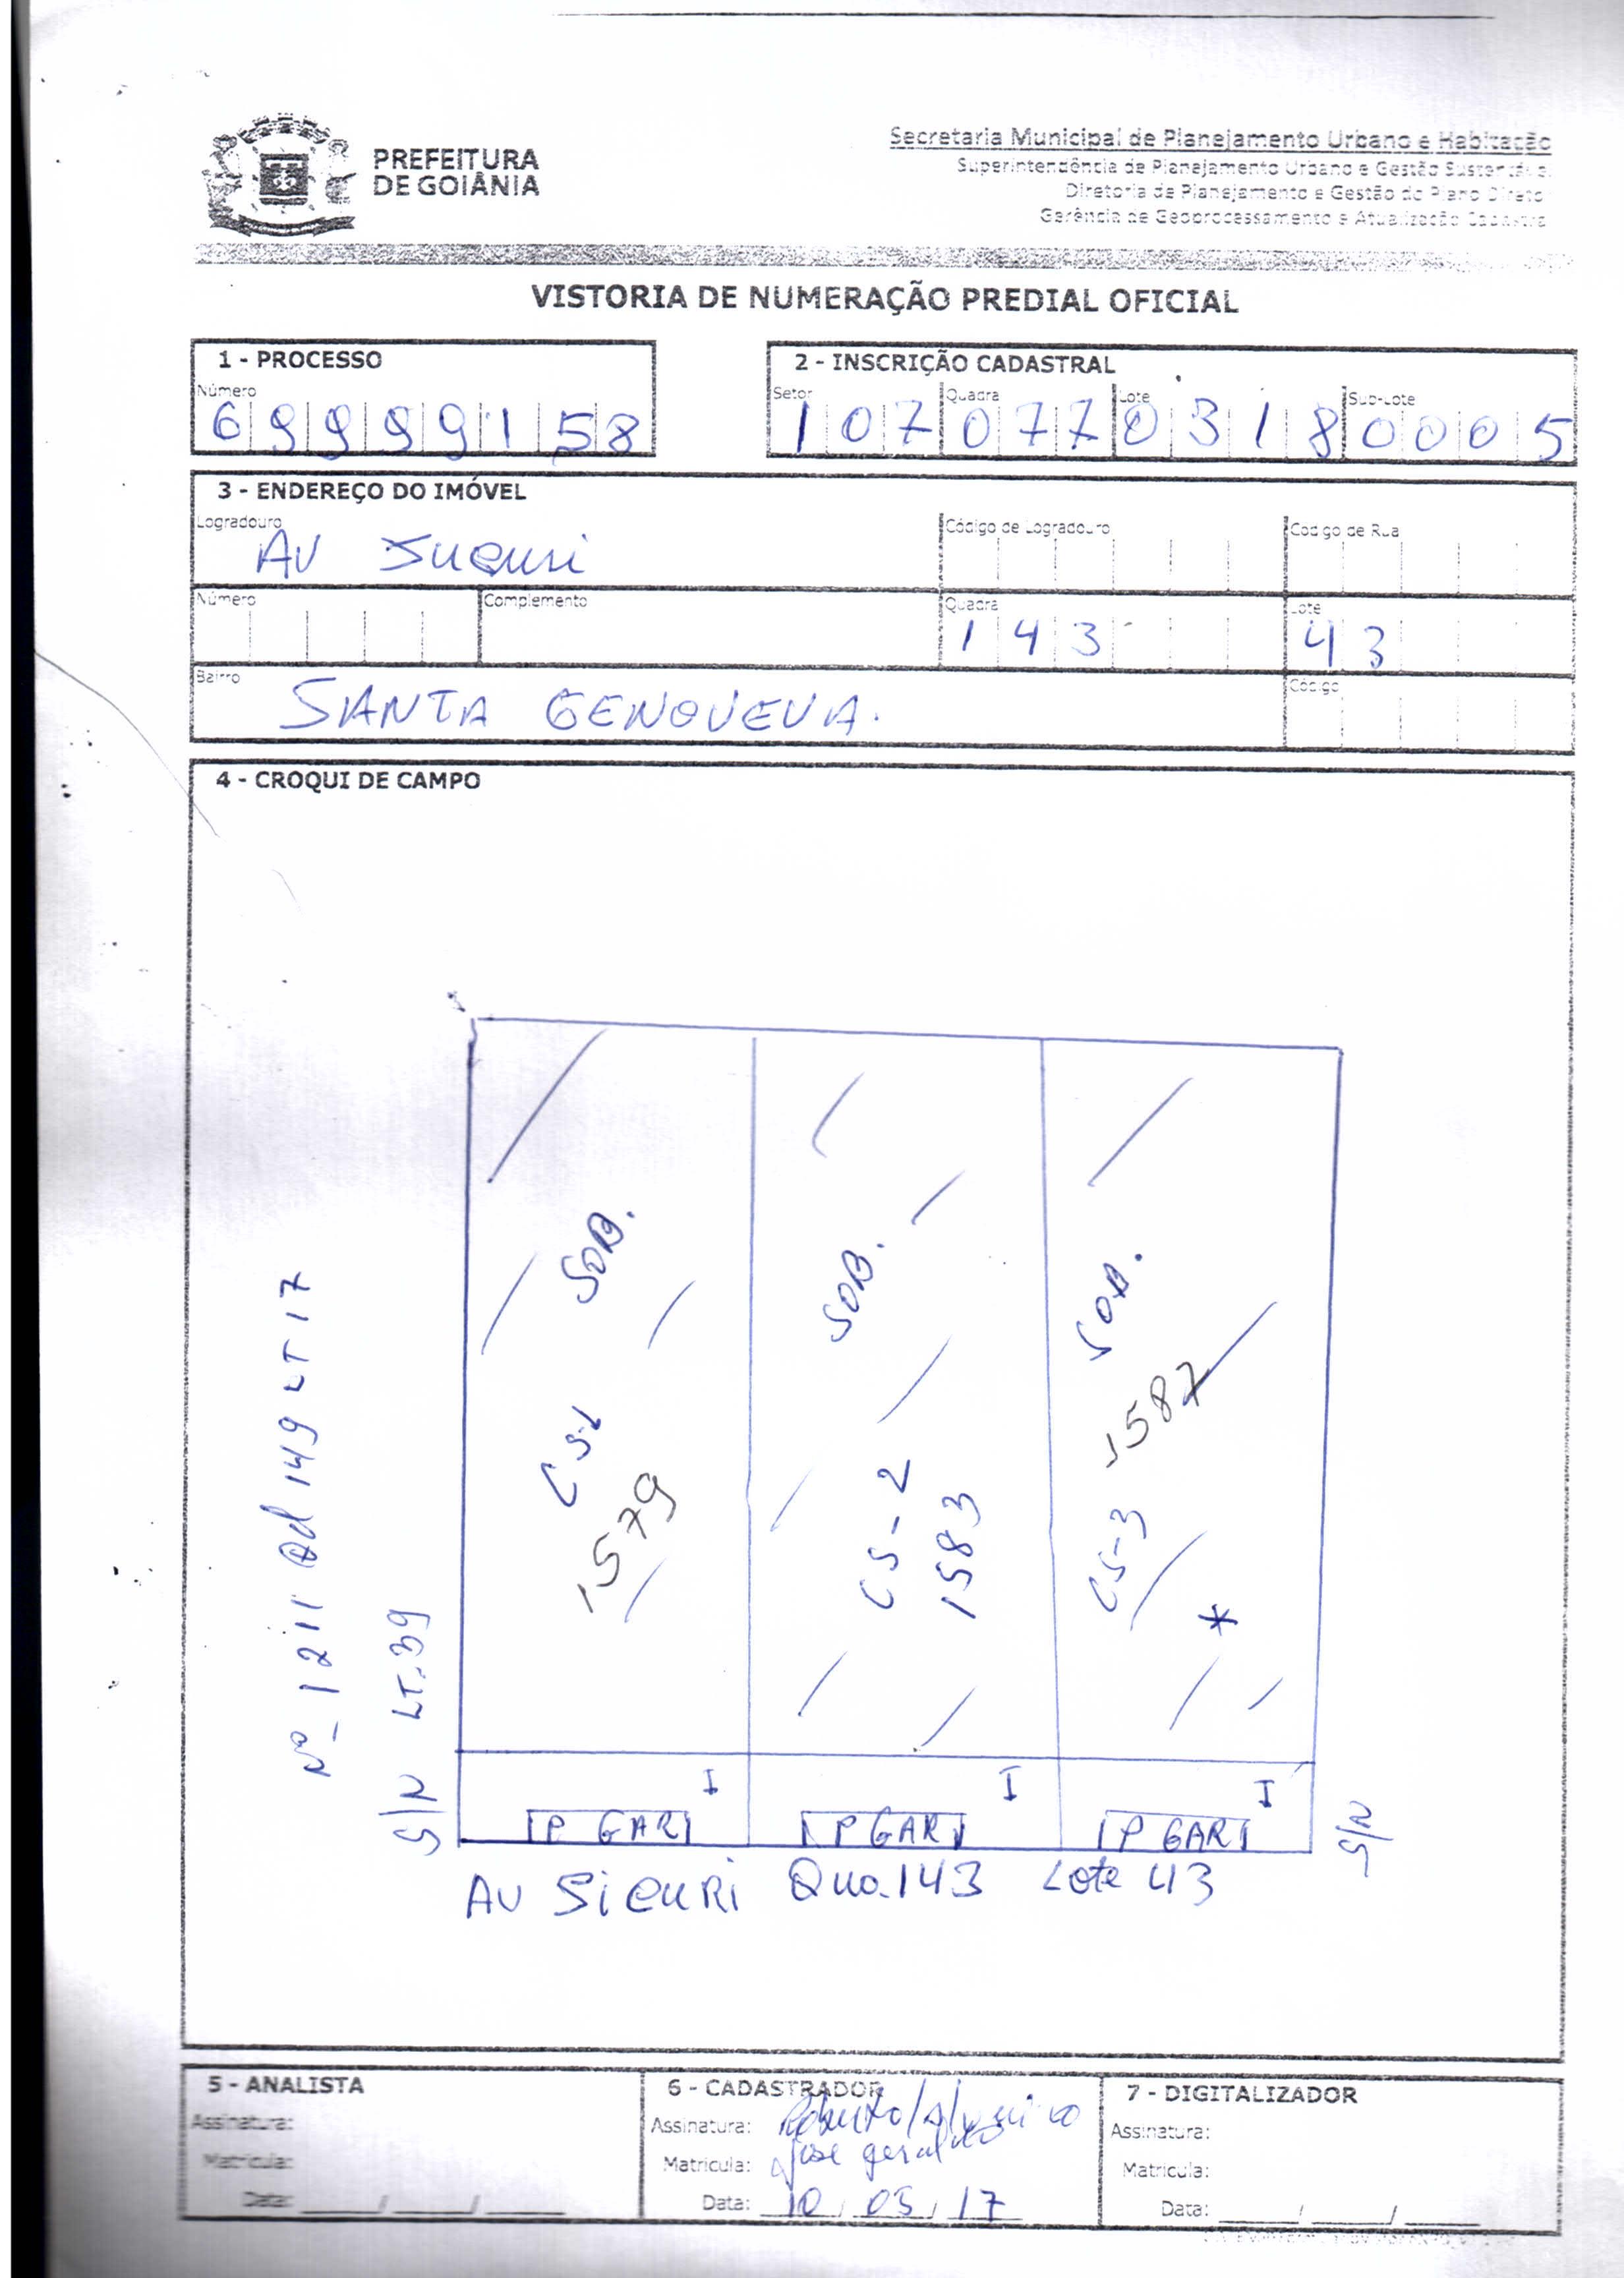 PREFEITURA
DE GOIÂNIA
Secretaria Municipal de Planejamento Urbano e Habitação
Superintendência de Planejamento Urbano e Gestão Sustentável
Diretoria de Planejamento e Gestão do Plano Diretor
Gerência de Geoprocessamento e Atualização Cadastral
VISTORIA DE NUMERAÇÃO PREDIAL OFICIAL
1 - PROCESSO
Número
69999158
2 - INSCRIÇÃO CADASTRAL
Setor Quadra Lote Sub-Lote
107 077 0318 0005
3 - ENDEREÇO DO IMÓVEL
Logradouro Código de Logradouro Codigo de Rua
AV
Número Complemento Quadra Lote
143 43
Bairro Código
SANTA GENOVEVA.
4 - CROQUI DE CAMPO
Nº 1211 Qd 149 LT 17
S/N LT.39
SOB.
CS-1
1579
SOB.
CS-2
1583
SOB.
1587
CS-3
*
I I I
P GAR P GAR P GAR
S/N
AV SiCURi Qua.143 Lote 43
5 - ANALISTA
Assinatura:
Matricula:
Data: ____/____/____
6 - CADASTRADOR
Assinatura: Roberto
Matricula: José geraldo
Data: 10/03/17
7 - DIGITALIZADOR
Assinatura:
Matricula:
Data: ____/____/____